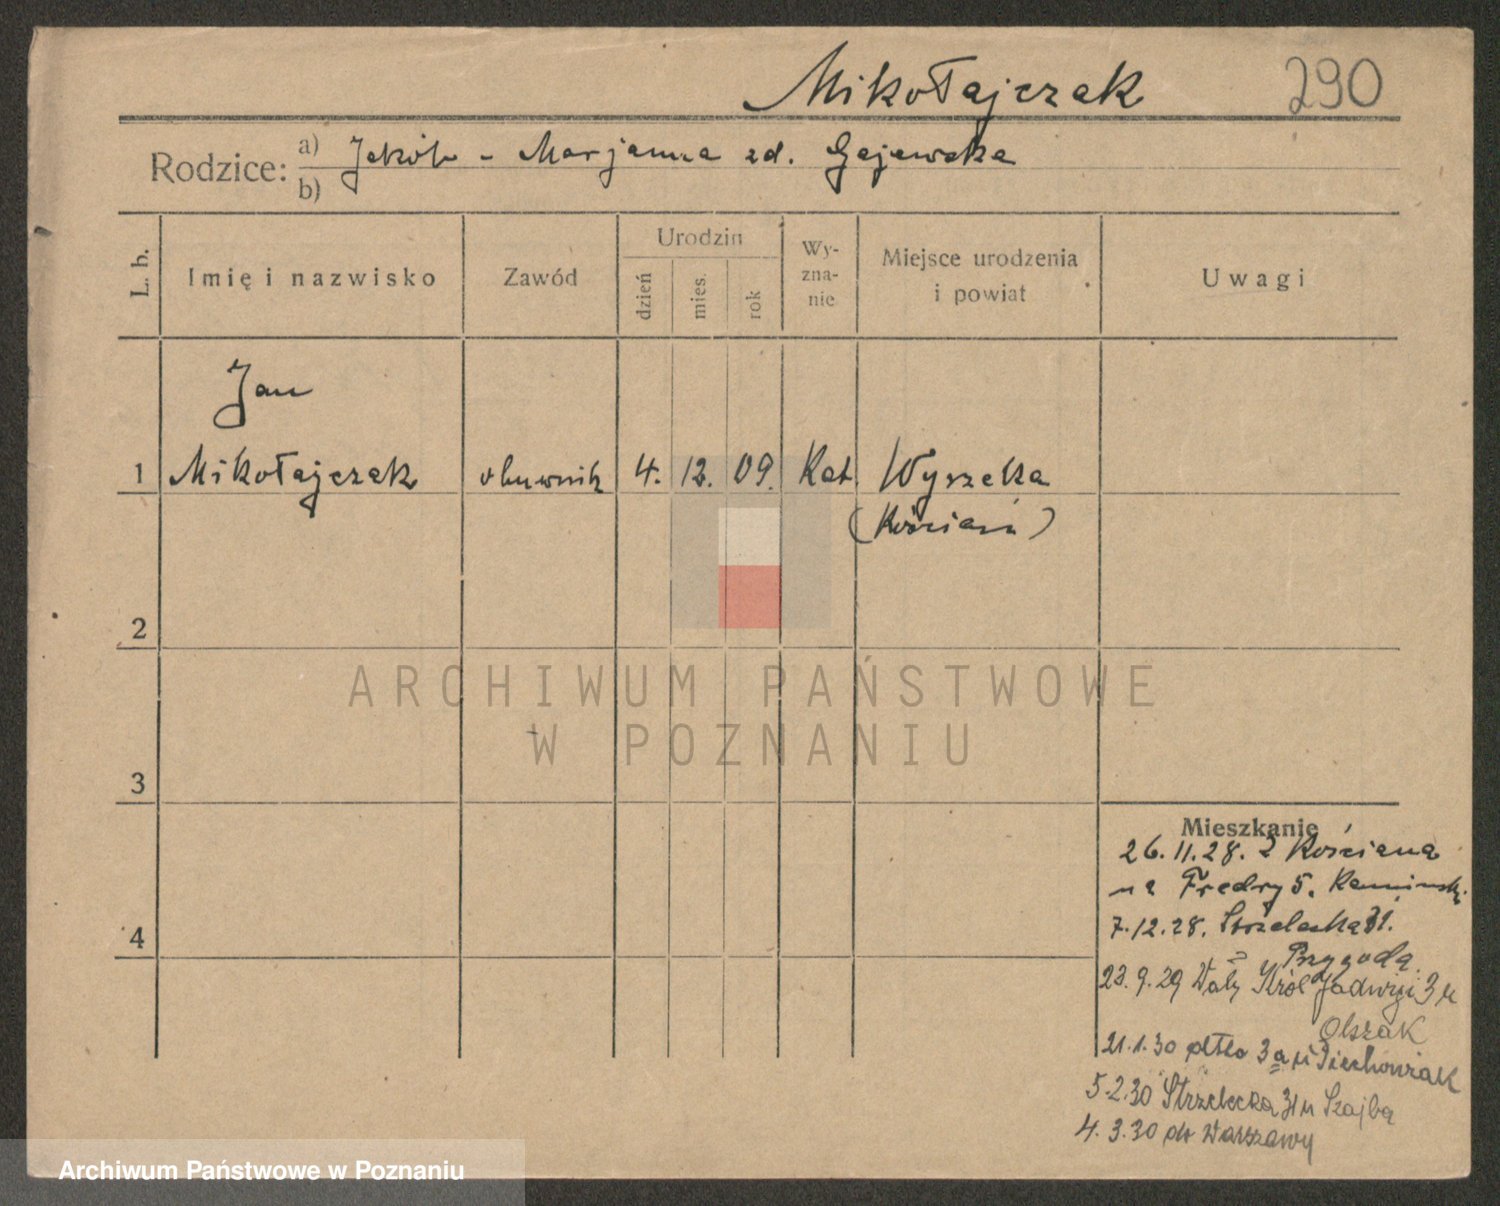 Mikołajczak 290
Rodzice: a) Jakób - Marjanna zd. Gajewska
b)
L. b. Imię i nazwisko Zawód Urodzin dzień mies. rok Wy-zna-nie Miejsce urodzenia i powiat Uwagi
Jan
1 Mikołajczak obuwnik 4. 12. 09. Kat. Wyszeka
(Kościan)
2
ARCHIWUM PAŃSTWOWE
W POZNANIU
3
Mieszkanie
26.11.28. z Kościana
na Fredry 5.
4
7.12.28. Strzelecka 31.
Przygoda
23.9.29 Wały Król Jadwigi 3 u
Olszak
21.1.30 dtto 3a u Piechowiak
5.2.30 Strzelecka 31 u Szajba
4.3.30 do Warszawy
Archiwum Państwowe w Poznaniu